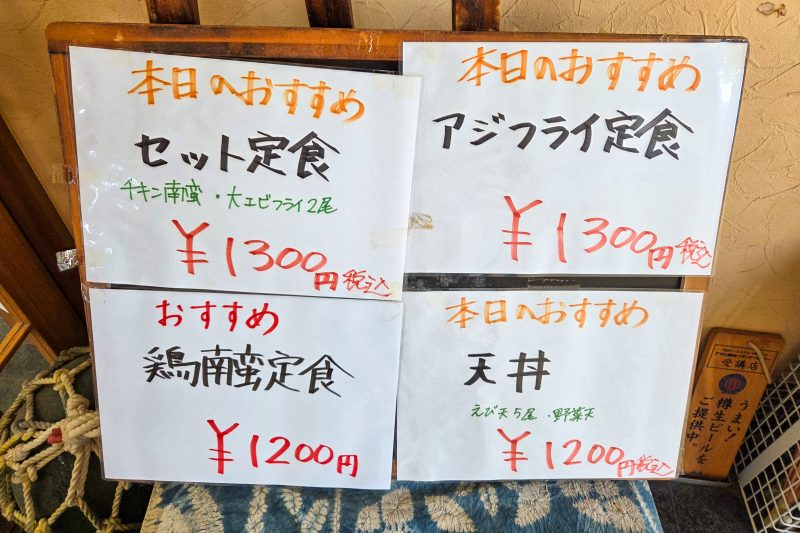 本日のおすすめ
セット定食
チキン南蛮・大エビフライ2尾
¥1300円税込
本日のおすすめ
アジフライ定食
¥1300円税込
おすすめ
鶏南蛮定食
¥1200円
本日のおすすめ
天丼
えび天5尾・野菜天
¥1200円税込
受講店
うまい!
樽生ビールを
ご提供中。